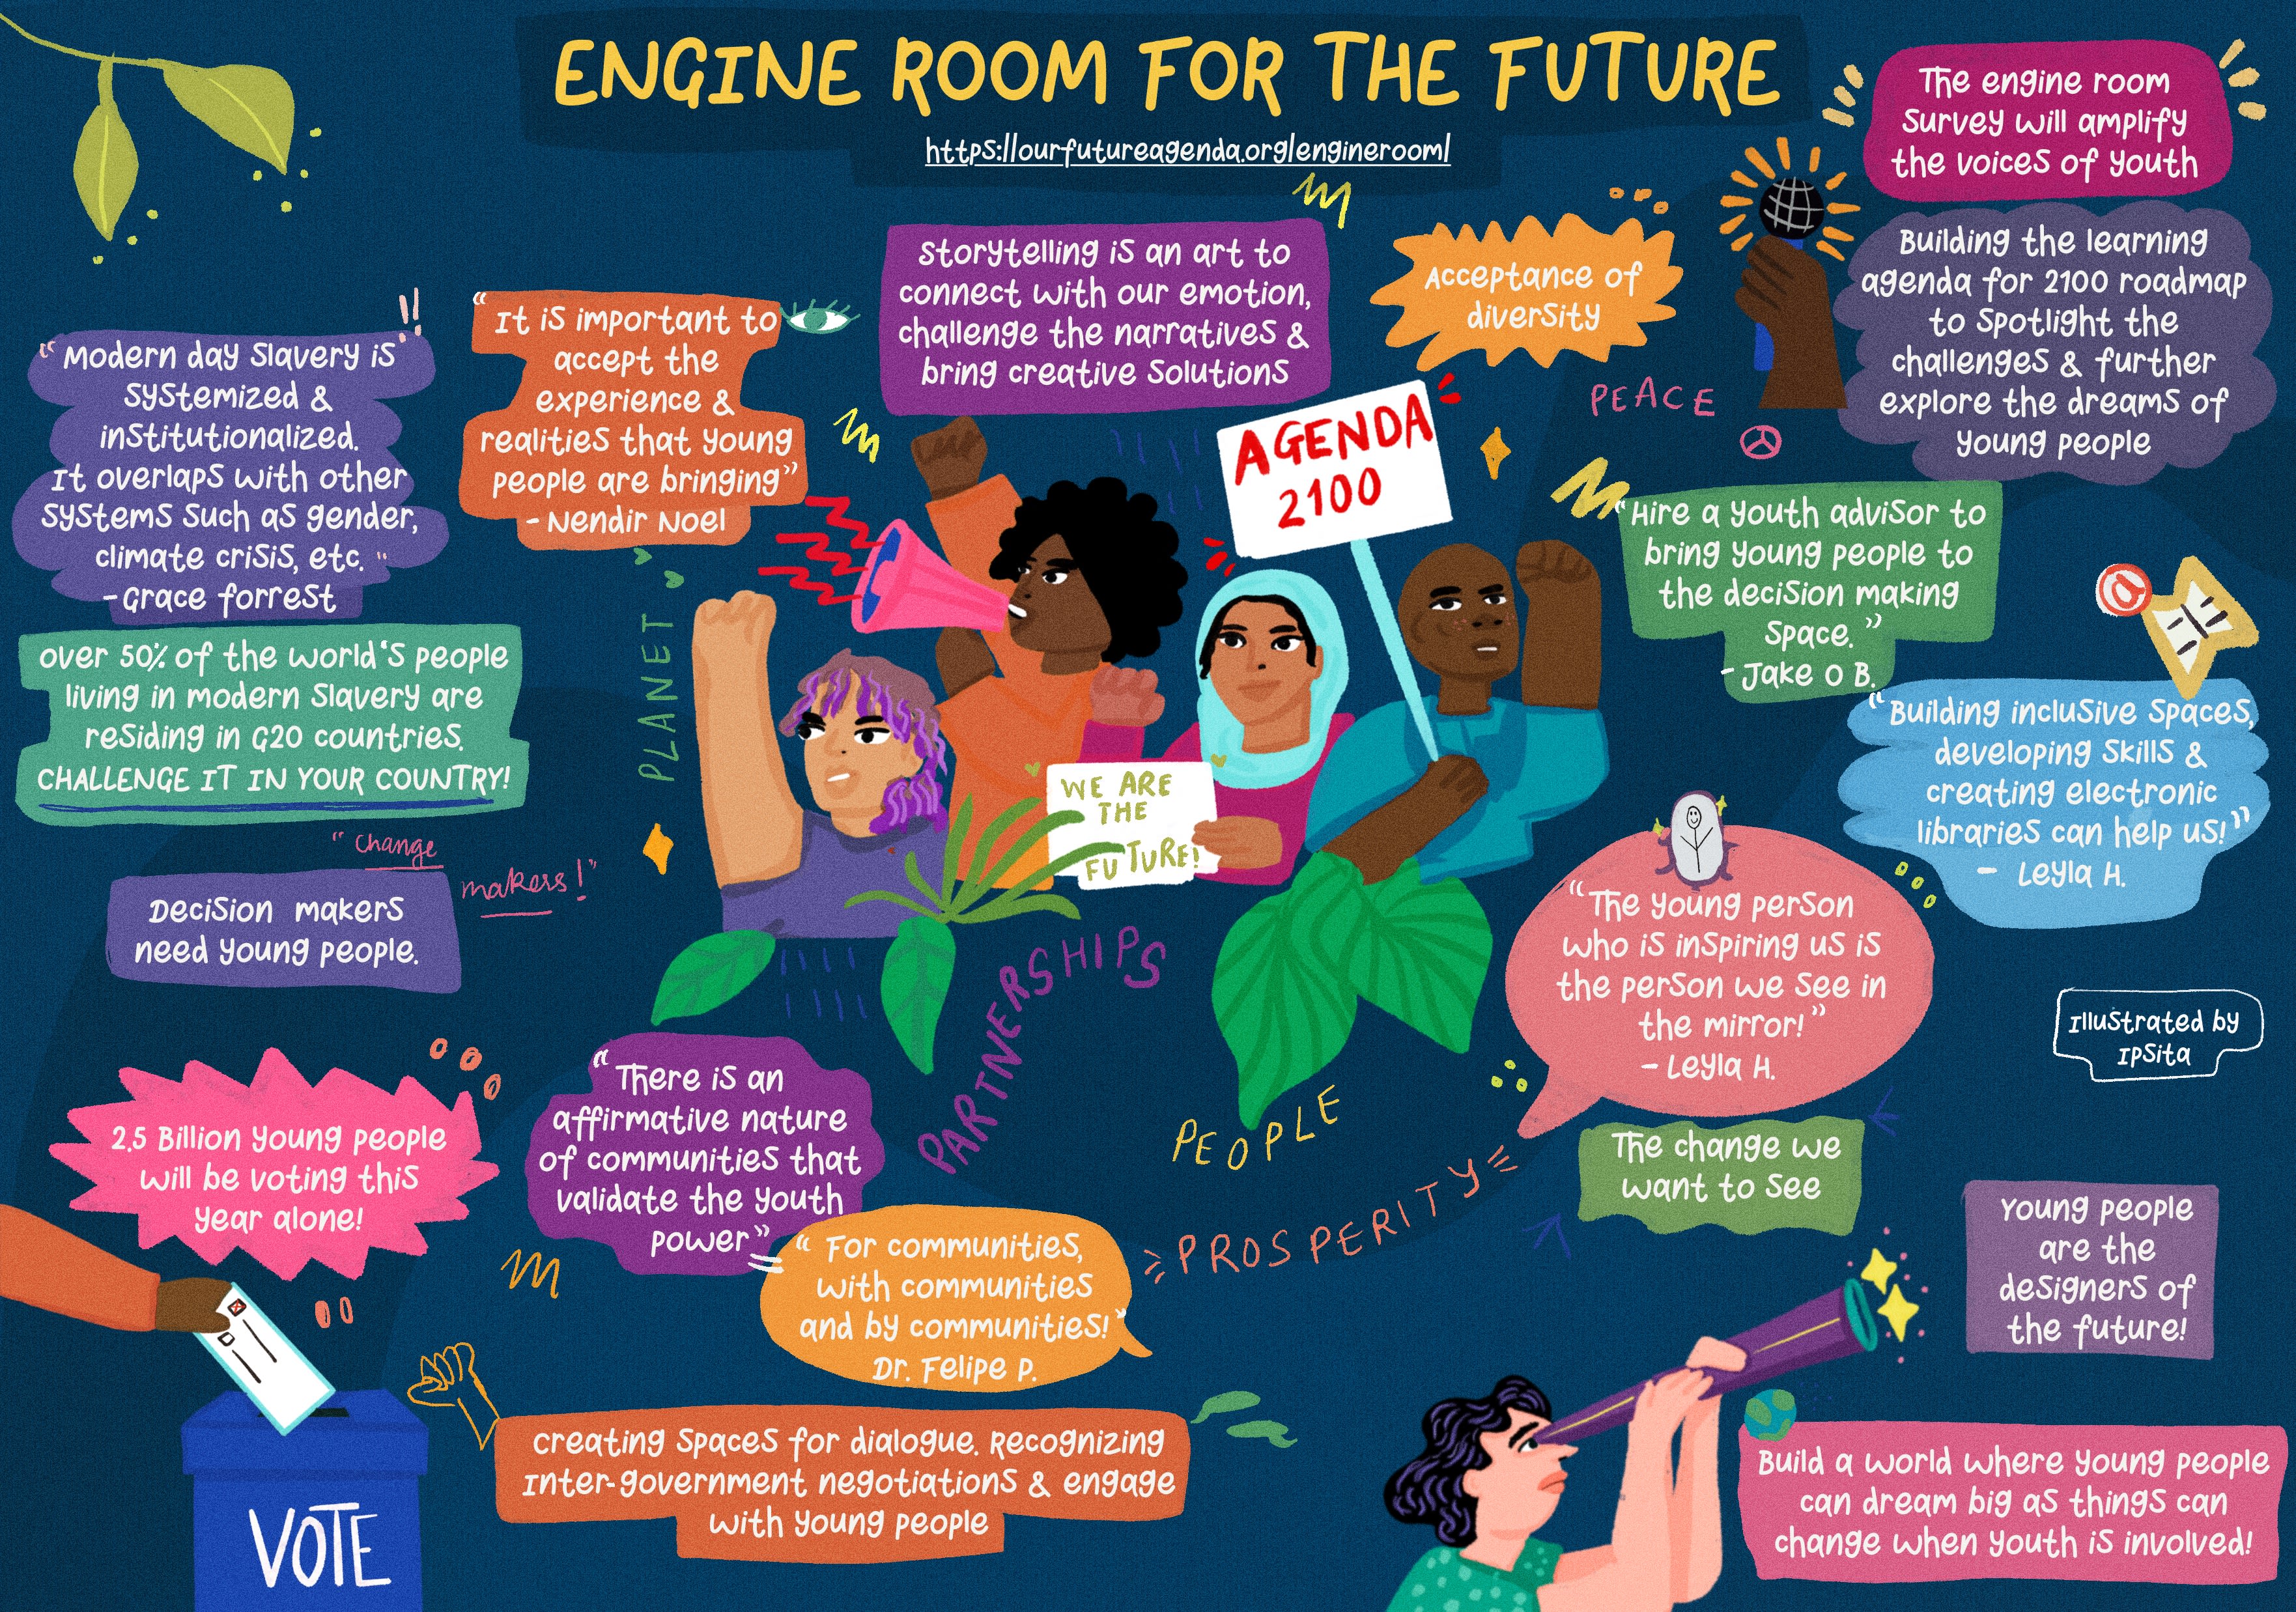 ENGINE ROOM FOR THE FUTURE
https://ourfutureagenda.org/engineroom/
The engine room
survey will amplify
the voices of youth
Building the learning
agenda for 2100 roadmap
to spotlight the
challenges & further
explore the dreams of
young people
storytelling is an art to
connect with our emotion,
challenge the narratives &
bring creative solutions
Acceptance of
diversity
PEACE
"It is important to
accept the
experience &
realities that young
people are bringing"
- Nendir Noel
"Modern day slavery is
systemized &
institutionalized.
It overlaps with other
systems such as gender,
climate crisis, etc."
- Grace forrest
over 50% of the world's people
living in modern slavery are
residing in G20 countries.
CHALLENGE IT IN YOUR COUNTRY!
"change
makers!"
Decision makers
need young people.
PLANET
AGENDA
2100
WE ARE
THE
FUTURE!
"Hire a youth advisor to
bring young people to
the decision making
space."
- Jake O B.
"Building inclusive spaces,
developing skills &
creating electronic
libraries can help us!"
- Leyla H.
"The young person
who is inspiring us is
the person we see in
the mirror!"
- Leyla H.
Illustrated by
Ipsita
PARTNERSHIPS
PEOPLE
PROSPERITY
The change we
want to see
Young people
are the
designers of
the future!
2.5 Billion young people
will be voting this
year alone!
"There is an
affirmative nature
of communities that
validate the youth
power"
"For communities,
with communities
and by communities!"
Dr. Felipe P.
VOTE
creating spaces for dialogue. Recognizing
Inter-government negotiations & engage
with young people
Build a world where young people
can dream big as things can
change when youth is involved!